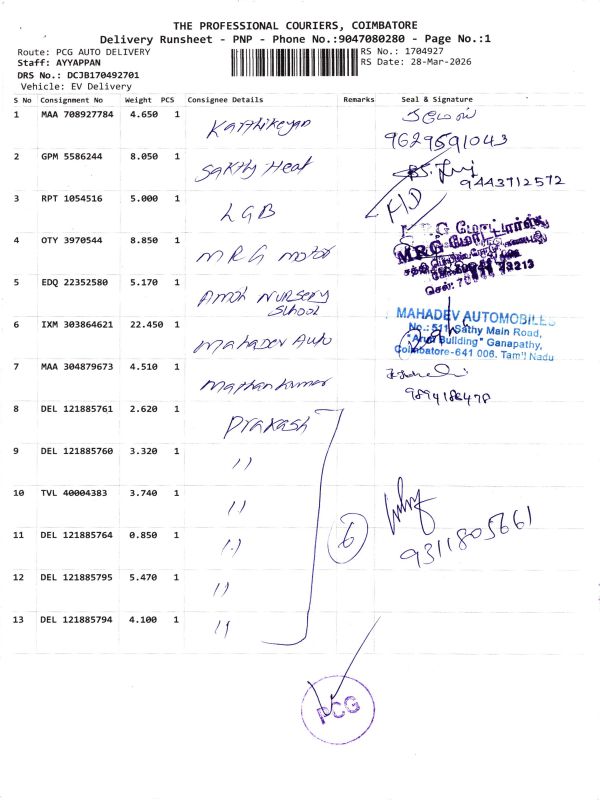 THE PROFESSIONAL COURIERS, COIMBATORE
Delivery Runsheet - PNP - Phone No.:9047080280 - Page No.:1
Route: PCG AUTO DELIVERY
Staff: AYYAPPAN
DRS No.: DCJB170492701
Vehicle: EV Delivery
RS No.: 1704927
RS Date: 28-Mar-2026
S No Consignment No Weight PCS Consignee Details Remarks Seal & Signature
1 MAA 708927784 4.650 1 Karthikeyan
9629591043
2 GPM 5586244 8.050 1 Sakthy Heat
9443712572
3 RPT 1054516 5.000 1 LGB
4 OTY 3970544 8.850 1 MRG motor
MRG மோட்டார்ஸ்
5 EDQ 22352580 5.170 1 Amor NURSERY School
6 IXM 303864621 22.450 1 Mahadev Auto
MAHADEV AUTOMOBILES
No.: 511, Sathy Main Road,
"Arul Building" Ganapathy,
Coimbatore-641 006. Tamil Nadu
7 MAA 304879673 4.510 1 Mathankumar
8 DEL 121885761 2.620 1 Prakash
9 DEL 121885760 3.320 1 〃
10 TVL 40004383 3.740 1 〃
11 DEL 121885764 0.850 1 〃
12 DEL 121885795 5.470 1 〃
13 DEL 121885794 4.100 1 〃
6
9311805661
PCG